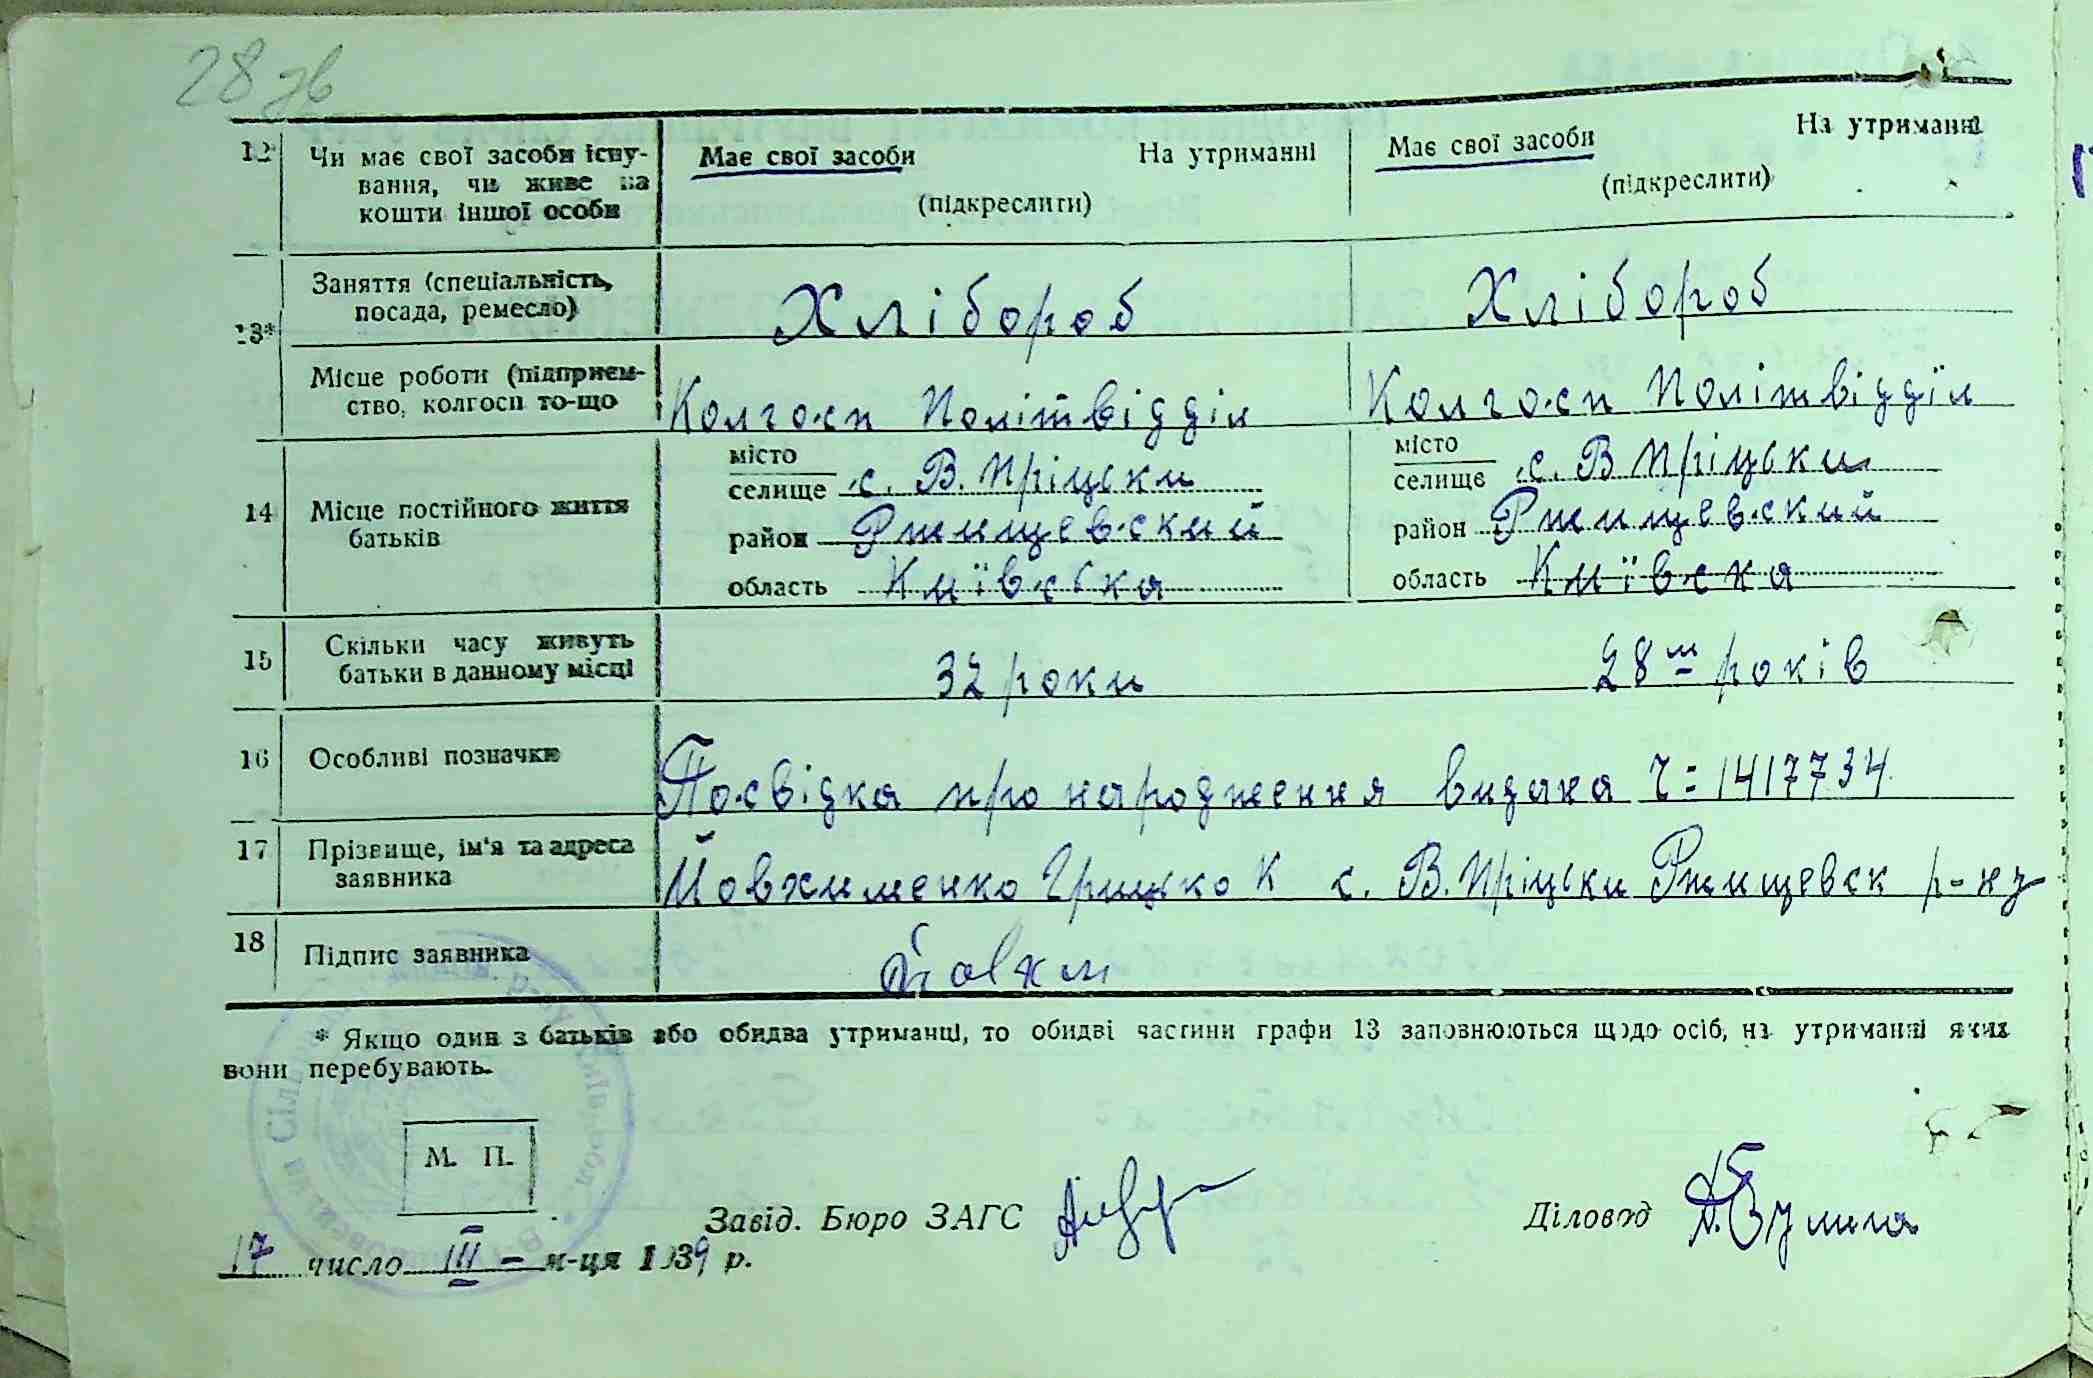 28 зв
12 Чи має свої засоби існу-
вання, чи живе на
кошти іншої особи
Має свої засоби На утриманні
(підкреслити)
Має свої засоби На утриманні
(підкреслити)
13* Заняття (спеціальність,
посада, ремесло)
Хлібороб Хлібороб
Місце роботи (підприєм-
ство, колгосп то-що
Колгосп Політвідділ Колгосп Політвідділ
14 Місце постійного життя
батьків
місто
селище с. В. Пріцьки
район Ржищевский
область Київська
місто
селище с. В Пріцьки
район Ржищевский
область Київска
15 Скільки часу живуть
батьки в данному місці
32 роки 28м років
16 Особливі позначки
Посвідка про народження видана Ч = 1417734
17 Прізвище, ім'я та адреса
заявника
Йовхименко Грицько К с. В. Пріцьки Ржищевск р-на
18 Підпис заявника
Йовхим
* Якщо один з батьків або обидва утриманці, то обидві частини графи 13 заповнюються щодо осіб, на утриманні яких
вони перебувають.
М. П.
Завід. Бюро ЗАГС Діловод
17 число III – м-ця 1939 р.